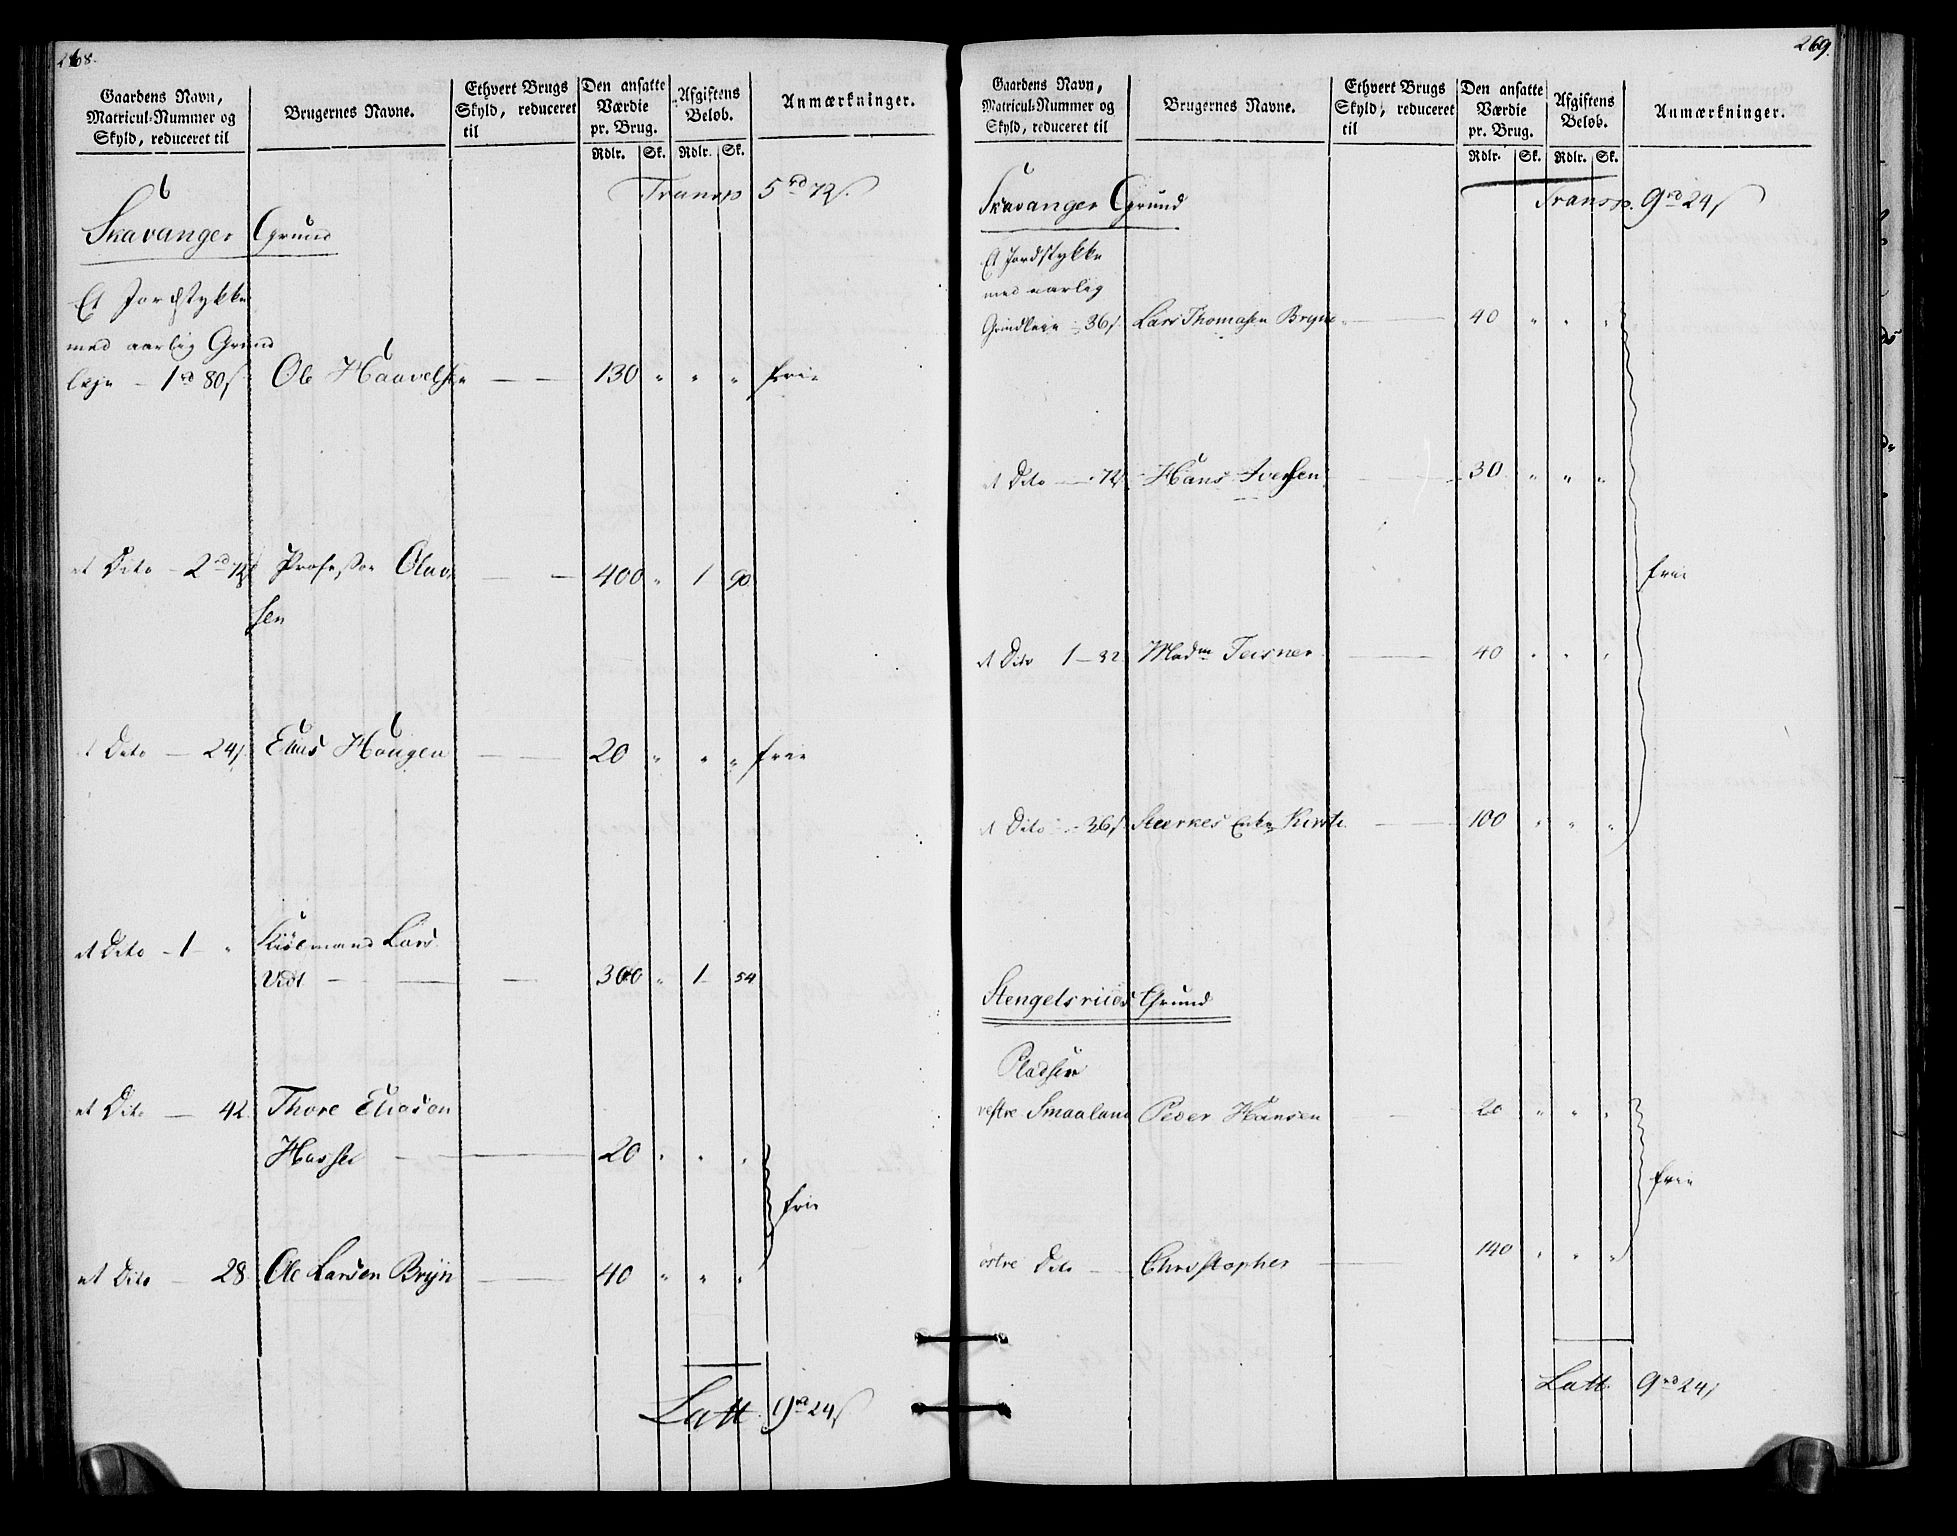 268.
Gaardens Navn, Matricul-Nummer og Skyld, reduceret til
Brugernes Navne.
Ethvert Brugs Skyld, reduceret til
Den ansatte Værdie pr. Brug.
Afgiftens Beløb.
Anmærkninger.
Rdlr. Sk. Rdlr. Sk.
Transp 5 rd 72 s
Skavanger Grund
Et Jordstykke
med aarlig Grund
leje - 1 rd 80 s Ole Haavelsen — 130 " " " frie
et Dito - 2 rd 72 s Professor Olav — 400 " 1 90
sen
et Dito — 24 s Elias Haugen — 20 " " " frie
et Dito - 1 - " Kiøbmand Lars
Vidt — 300 " 1 54
et Dito — 42 Thore Eliasen
— 20 " " "
frie
et Dito — 28 Ole Larsen Bryn — 40 " " "
Latt 9 rd 24 s
269.
Gaardens Navn, Matricul-Nummer og Skyld, reduceret til
Brugernes Navne.
Ethvert Brugs Skyld, reduceret til
Den ansatte Værdie pr. Brug.
Afgiftens Beløb.
Anmærkninger.
Rdlr. Sk. Rdlr. Sk.
Transp. 9 rd 24 s
Skavanger Grund
Et Jordstykke
med aarlig
Grundleie - 36 s Lars Thomasen Bryn — 40 " " "
et Dito — 72 s Hans Iversen — 30 " " "
frie
et Dito 1 - 32 Madm Teisner — 40 " " "
et Dito - 36 s Enke Kirste — 100 " " "
Stengelsruds Grund
Pladsen
vestre Smaaland Peder Hansen — 20 " " "
frie
østre Dito — Christopher — 140 " " "
Latt 9 rd 24 s